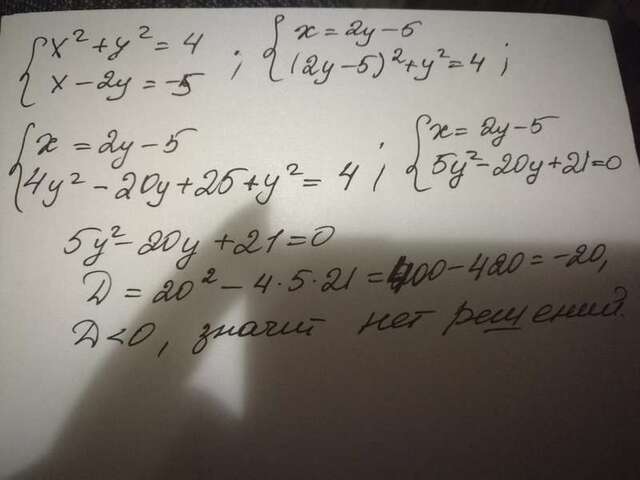 { x² + y² = 4 ; { x = 2y - 5
x - 2y = -5 (2y - 5)² + y² = 4 ;
{ x = 2y - 5 ; { x = 2y - 5
4y² - 20y + 25 + y² = 4 5y² - 20y + 21 = 0
5y² - 20y + 21 = 0
D = 20² - 4 · 5 · 21 = 400 - 420 = -20,
D < 0, значит нет решений.